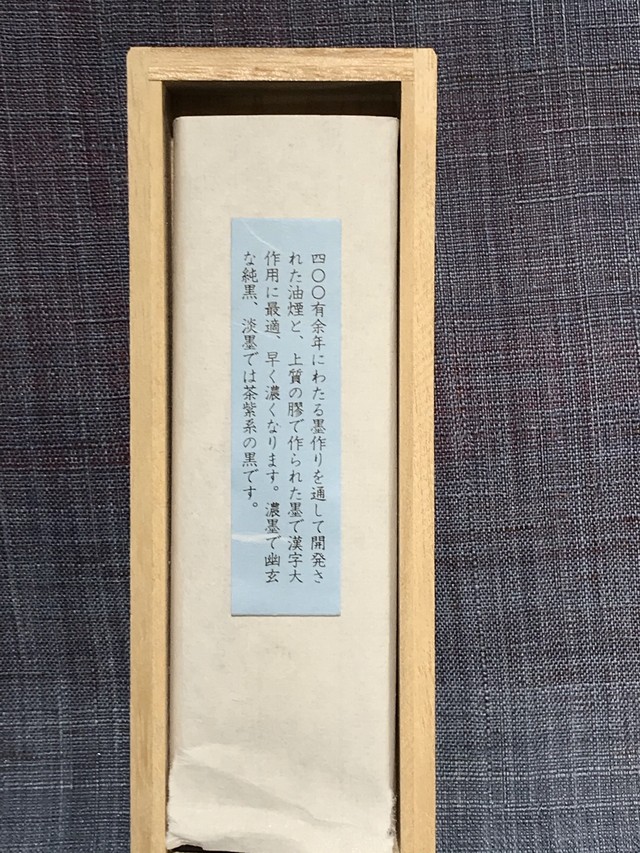 四〇〇有余年にわたる墨作りを通して開発さ
れた油煙と、上質の膠で作られた墨で漢字大
作用に最適、早く濃くなります。濃墨で幽玄
な純黒、淡墨では茶紫系の黒です。